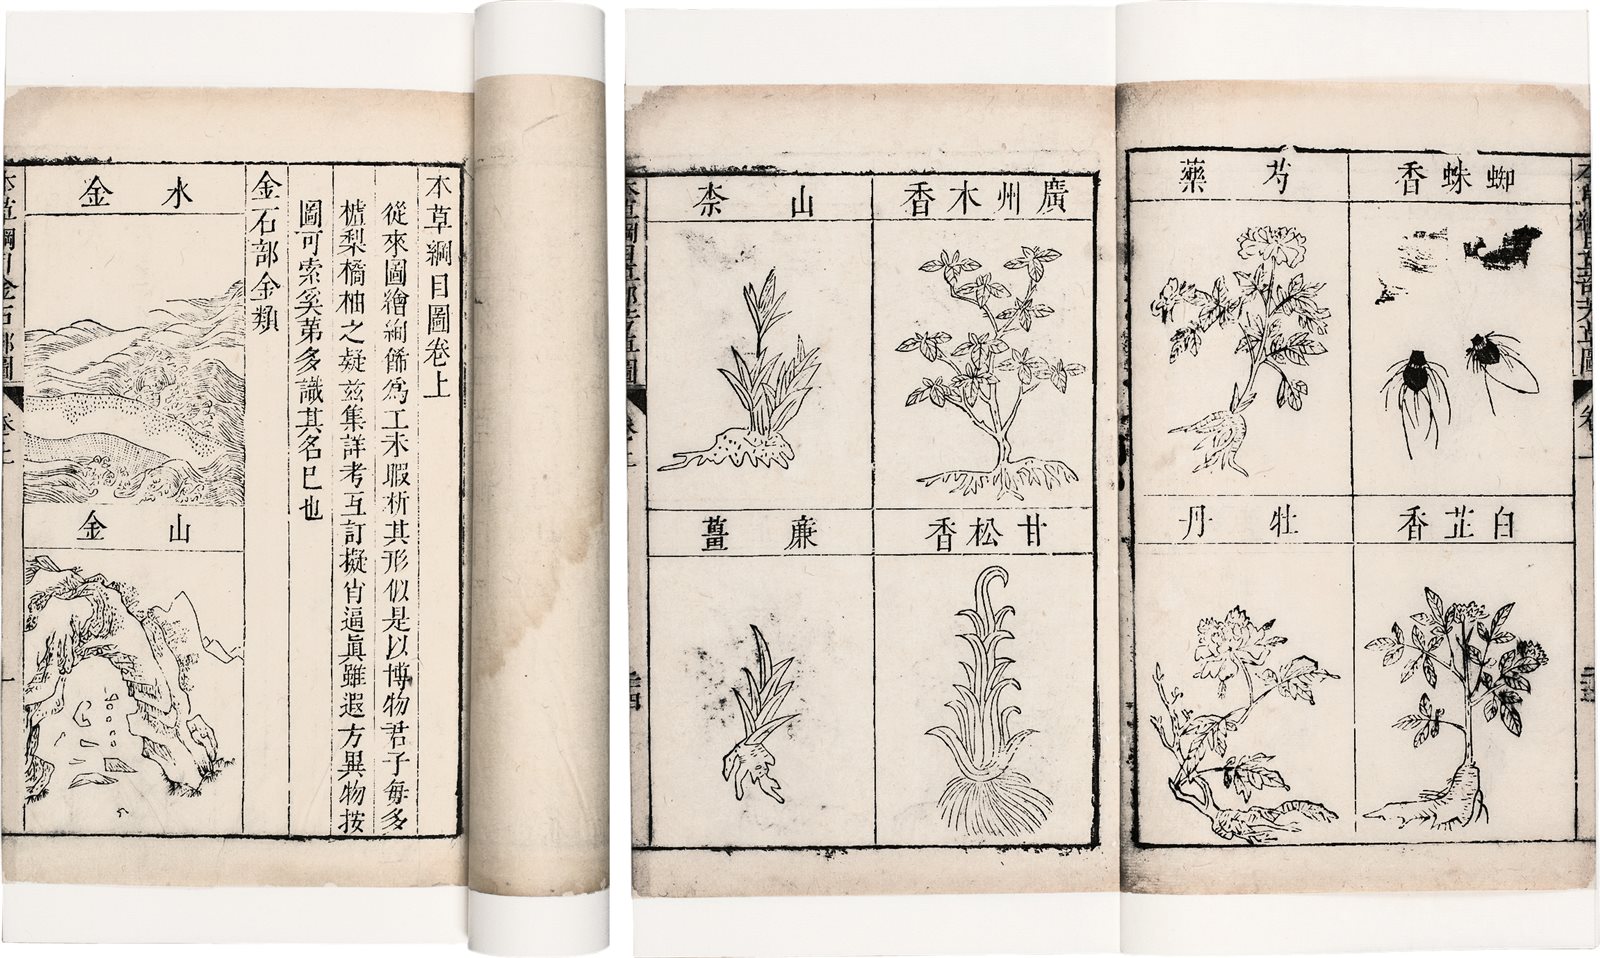 本草綱目圖卷上
從來圖繪絢餙爲工未暇析其形似是以博物君子每多
樝梨橘柚之疑茲集詳考互訂擬肖逼眞雖遐方異物按
圖可索奚第多識其名已也
金石部金類
水金
山金
本草綱目金石部圖
卷上
一
蜘蛛香
芍藥
白芷香
牡丹
廣州木香
山柰
甘松香
廉薑